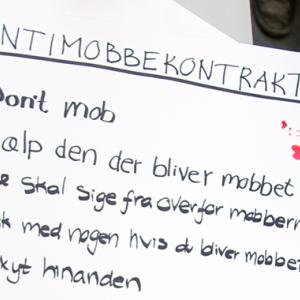 NTIMOBBEKONTRAKT
Don't mob
alp den der bliver mobbet
skal sige fra overfor mobbern
k med nogen hvis du bliver mobbet
kyt hinanden